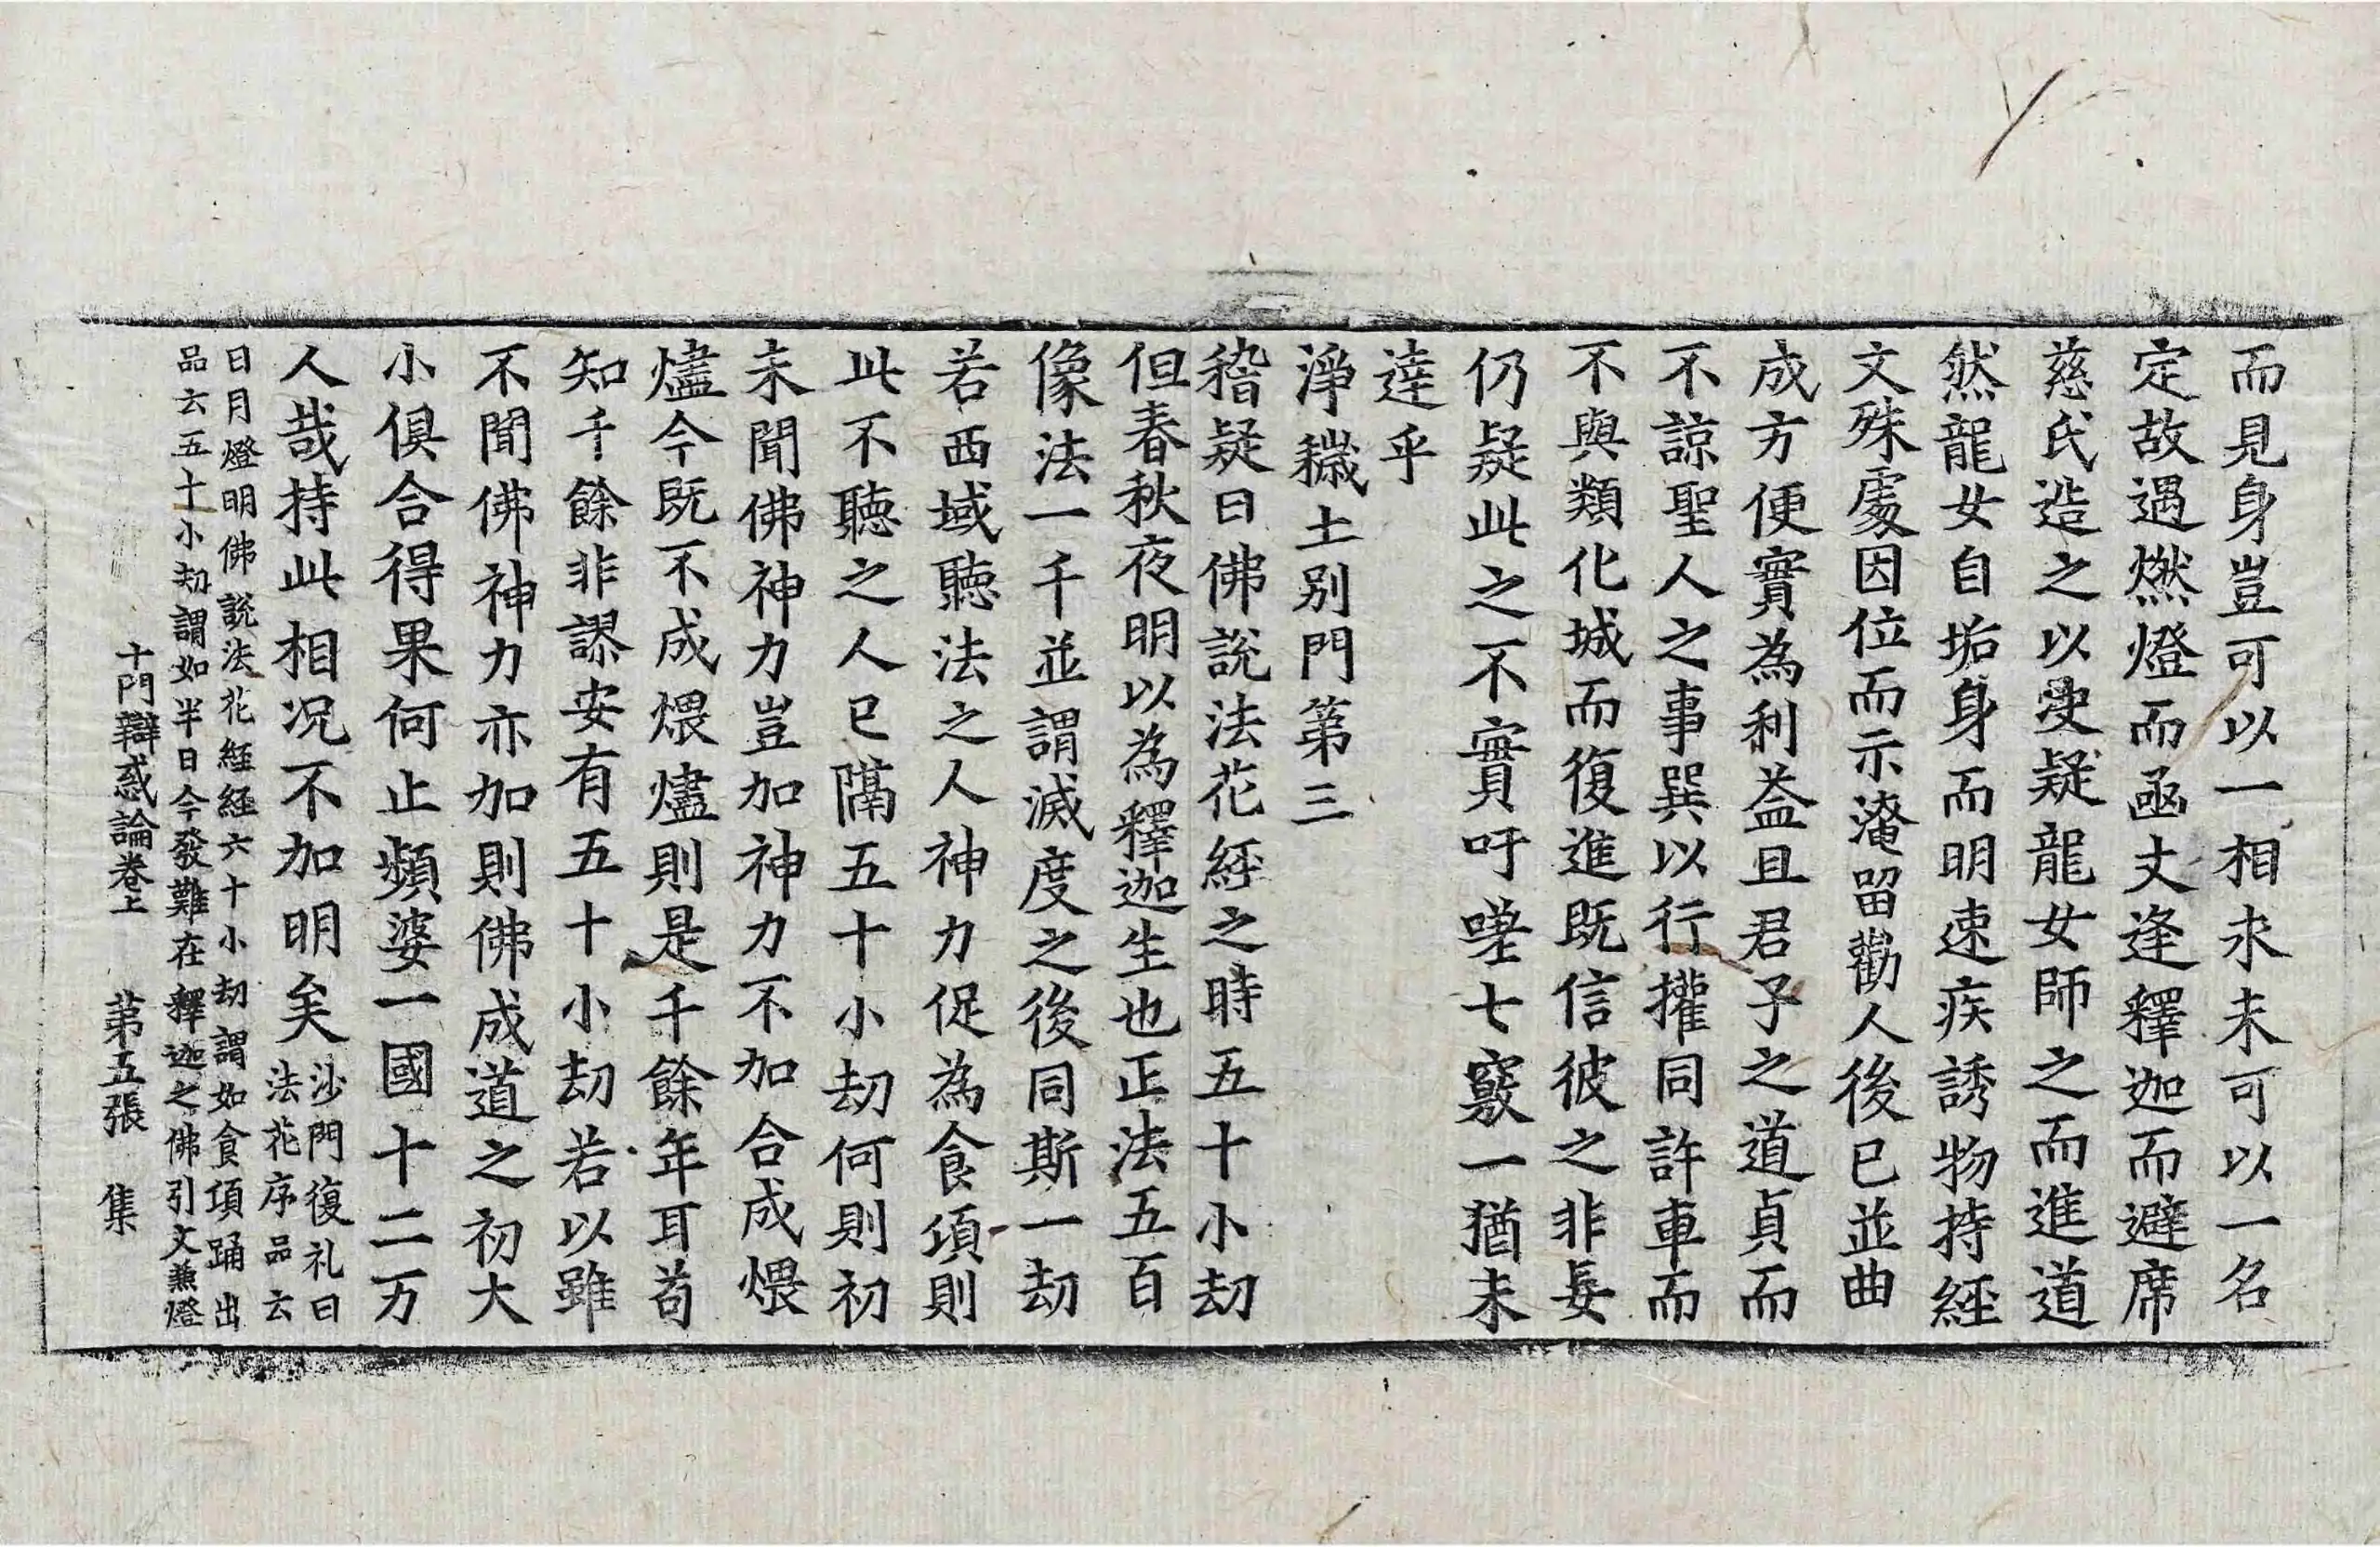 而見身豈可以一相求未可以一名
定故遇燃燈而函丈逢釋迦而避席
慈氏造之以受疑龍女師之而進道
然龍女自垢身而明速疾誘物持經
文殊處因位而示淹留勸人後已並曲
成方便實為利益且君子之道貞而
不諒聖人之事巽以行權同許車而
不與類化城而復進既信彼之非妄
仍疑此之不實吁嗟七竅一猶未
達乎
淨穢土別門第三
稽疑曰佛說法花經之時五十小劫
但春秋夜明以為釋迦生也正法五百
像法一千並謂滅度之後同斯一劫
若西域聽法之人神力促為食頃則
此不聽之人已隔五十小劫何則初
未聞佛神力豈加神力不加合成煨
燼今既不成煨燼則是千餘年耳苟
知千餘非謬安有五十小劫若以雖
不聞佛神力亦加則佛成道之初大
小俱合得果何止頻婆一國十二万
人哉持此相況不加明矣沙門復礼曰
法花序品云
日月燈明佛說法花経経六十小劫謂如食項踊出
品云五十小劫謂如半日今發難在釋迦之佛引文兼燈
十門辯惑論卷上 第五張 集